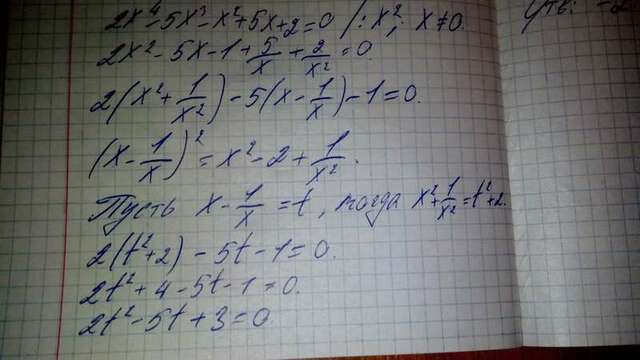 2x⁴-5x³-x²+5x+2=0 /:x²; x≠0.
2x²-5x-1+5/x+2/x²=0.
2(x²+1/x²)-5(x-1/x)-1=0.
(x-1/x)²=x²-2+1/x².
Пусть x-1/x=t, тогда x²+1/x²=t²+2.
2(t²+2)-5t-1=0.
2t²+4-5t-1=0.
2t²-5t+3=0